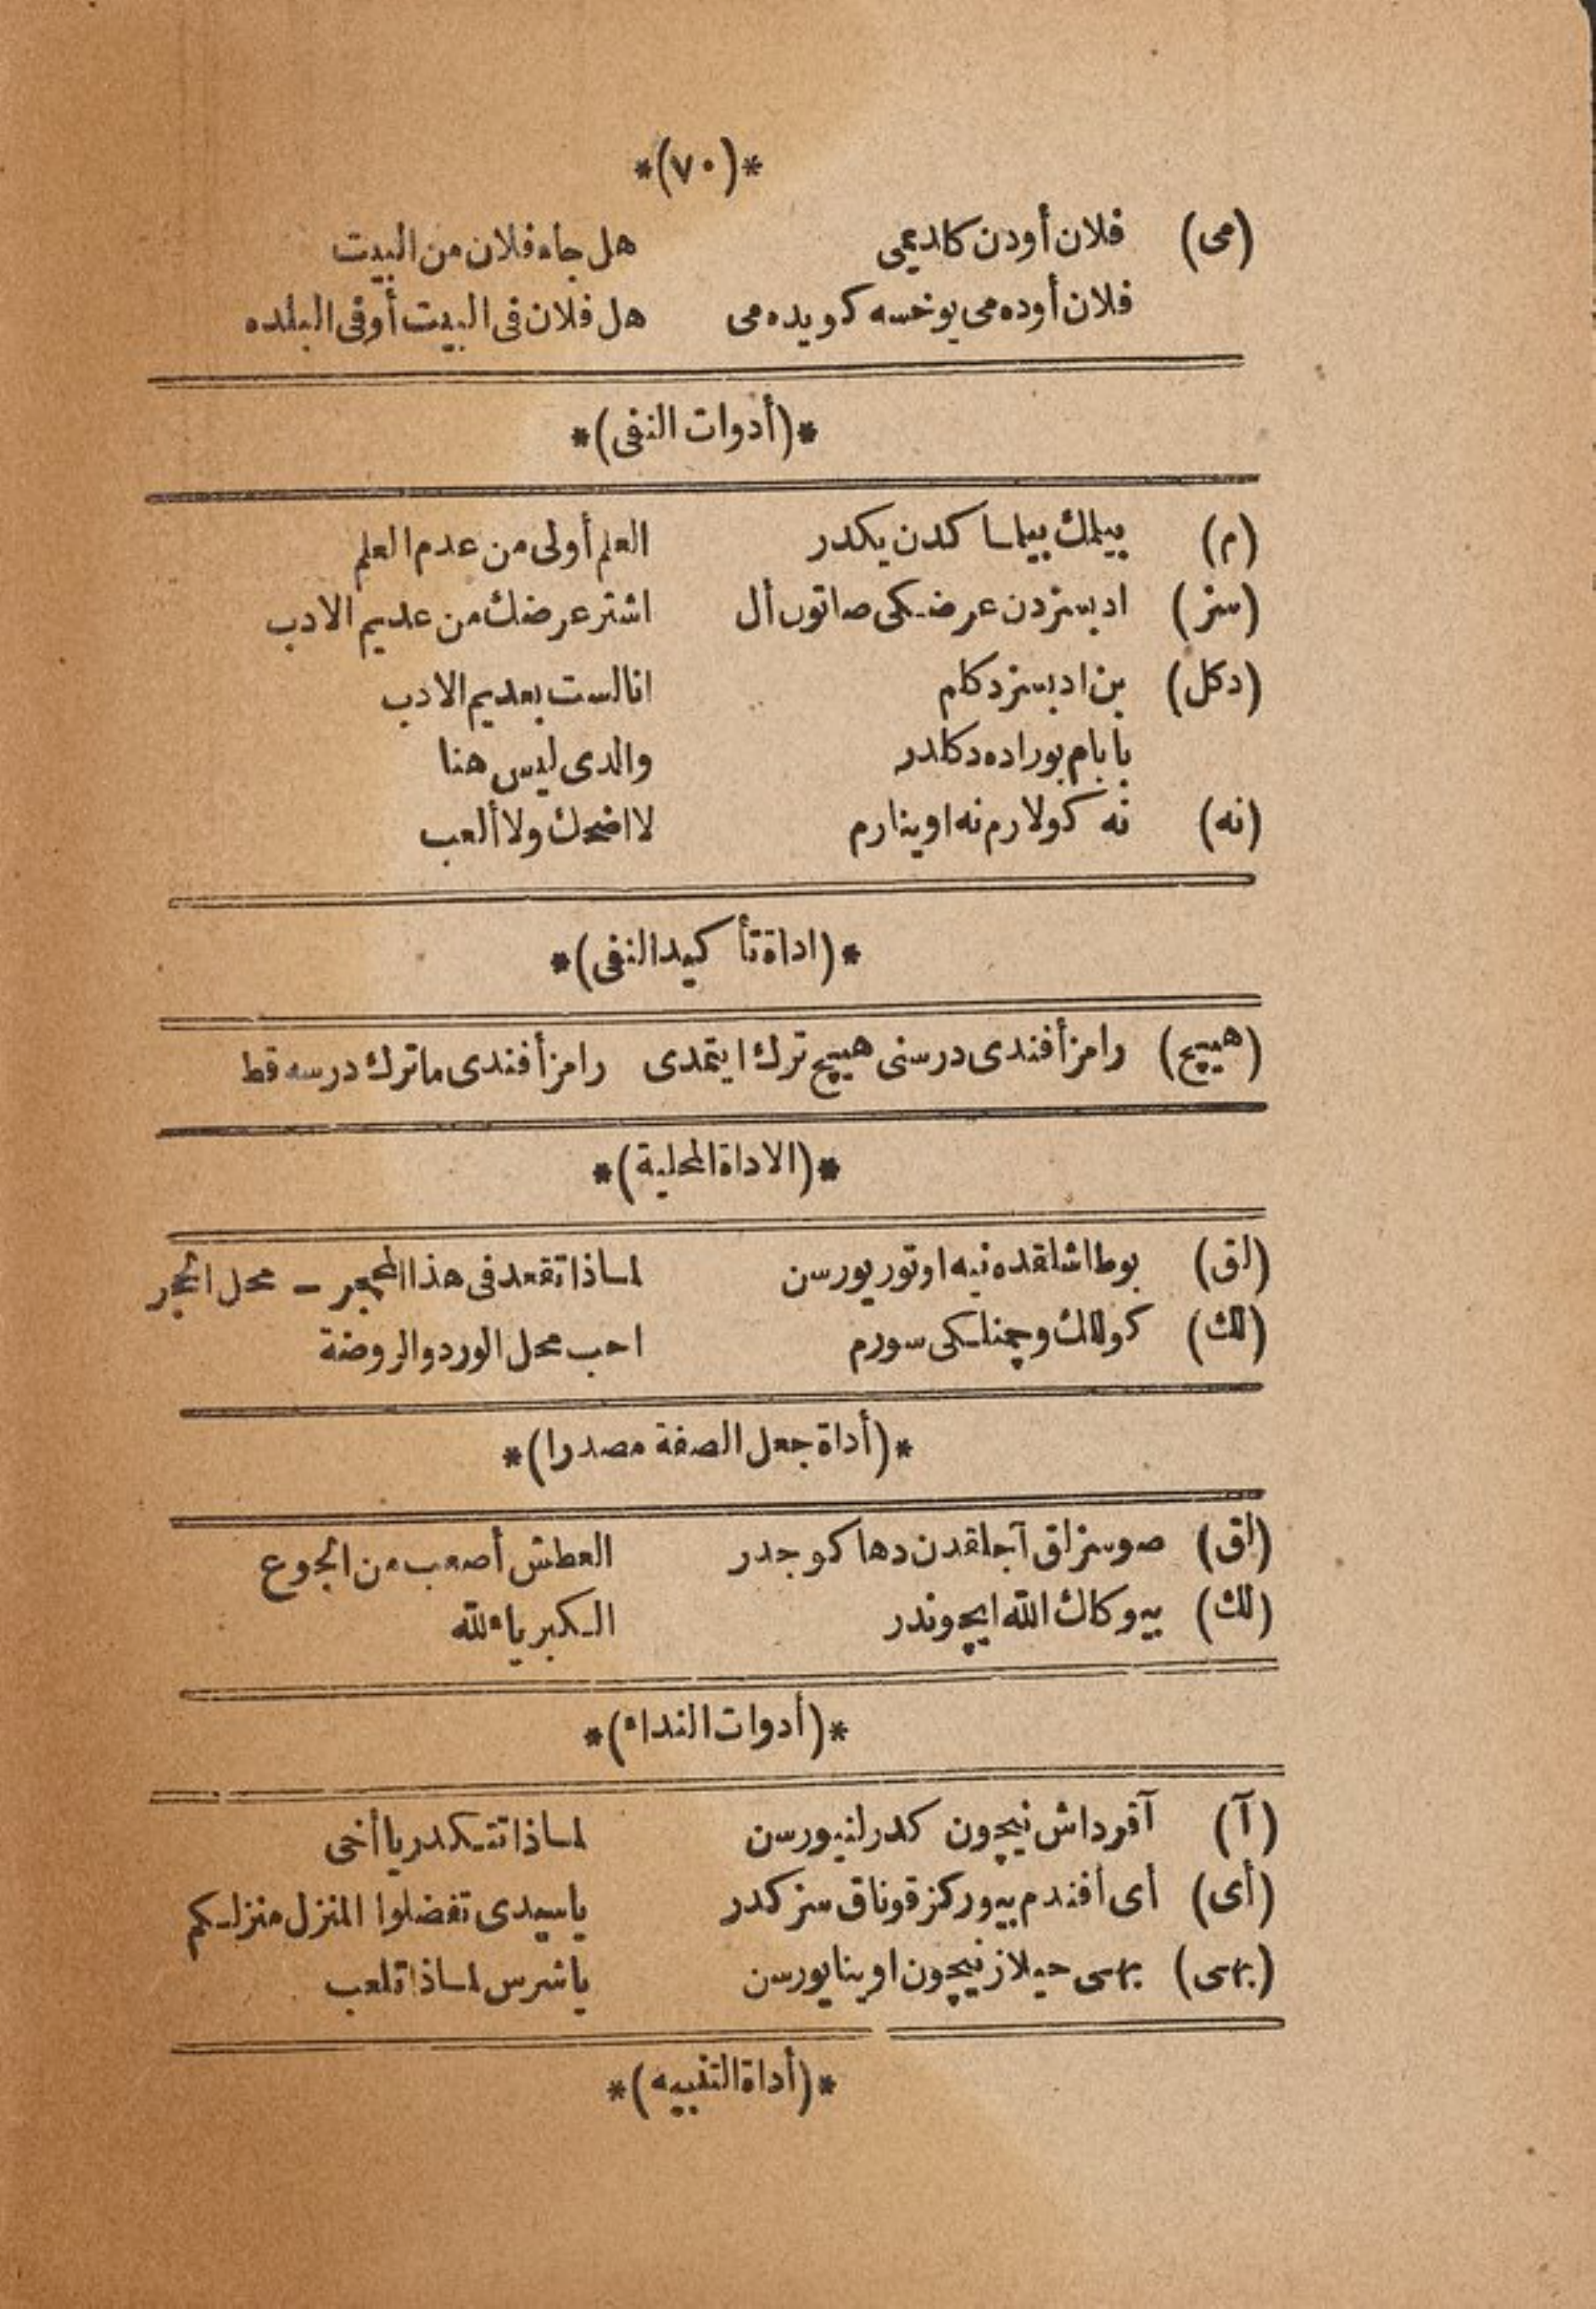 *(٧٠)*
(می) فلان أودن کلدیمی هل جاء فلان من البیت
فلان أوده می یوخسه کویده می هل فلان فی البیت أو فی البلده
*(أدوات النفی)*
(م) بیلمك بیلماکدن یکدر العلم أولی من عدم العلم
(سز) ادبسزدن عرضکی صاتون أل اشتر عرضك من عدیم الادب
(دکل) بن ادبسز دکلم انا لست بعدیم الادب
بابام بوراده دکلدر والدی لیس هنا
(نه) نه کولارم نه اوینارم لا اضحك ولا ألعب
*(اداة تأکید النفی)*
(هیچ) رامز أفندی درسنی هیچ ترك ایتمدی رامز أفندی ما ترك درسه قط
*(الاداة المحلیة)*
(لق) بوطاشلقده نیه اوتوریورسن لماذا تقعد فی هذا المحجر – محل الحجر
(لك) کوللك وچمنلکی سورم احب محل الورد والروضة
*(أداة جعل الصفة مصدرا)*
(لق) صوسزلق آجلقدن دها کوجدر العطش أصعب من الجوع
(لك) بیوکلك الله ایچوندر الکبریاء لله
*(أدوات النداء)*
(آ) آقرداش نیچون کدرلنیورسن لماذا تتکدر یا أخی
(أی) أی أفندم بیورکز قوناق سزکدر یاسیدی تفضلوا المنزل منزلکم
(بهی) بهی حیلاز نیچون اوینایورسن یاشرس لماذا تلعب
*(أداة التنبیه)*